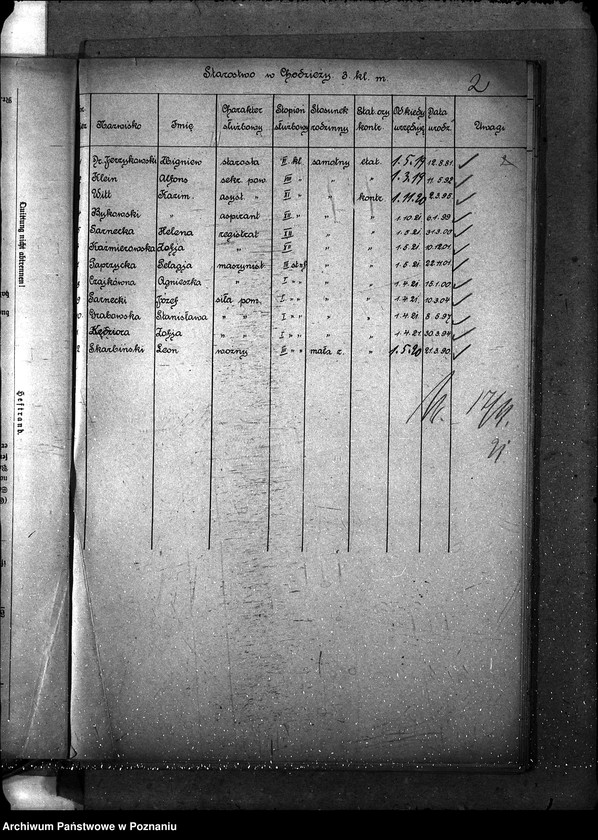 Starostwo w Chodzieży 3. kl. m.
2
Nazwisko Imię Charakter służbowy Stopień służbowy Stosunek rodzinny Stat. czy kontr. Od kiedy urzęduje Data urodz. Uwagi
Dr. Jerzykowski Zbigniew starosta II. kl. samotny etat. 1.5.19 12.8.81
Klein Alfons sekr. pow. VIII " " " 1.3.19 11.5.92
Witt Kazim. asyst. " XI " " kontr. 1.11.20 2.3.95
Bykowski " aspirant " " " 1.10.21 6.1.99
Sarnecka Helena registrat XII " " " 31.3.00
Kaźmierowska Zofja " " " " 1.5.21 10.12.01
Paprzycka Pelagja maszynist III st. pf " " 1.5.21 22.11.01
Czajkówna Agnieszka " I " " " " 1.4.21 15.1.00
Sarnecki Józef siła pom. I " " " " 1.4.21 10.3.04
Grabowska Stanisława " " I " " " " 1.4.21 8.5.97
Kędziora Zofja " " I " " " " 1.4.21 30.3.94
Skarbiński Leon woźny III " " mała z. " 1.5.20 21.3.90
17/11.
21
Quittung nicht abtrennen!
Heftrand.
Archiwum Państwowe w Poznaniu